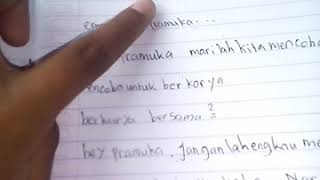 pramuka...
pramuka marilah kita mencoba
mencoba untuk berkarya
berkarya bersama ?
hey pramuka, janganlah engkau me